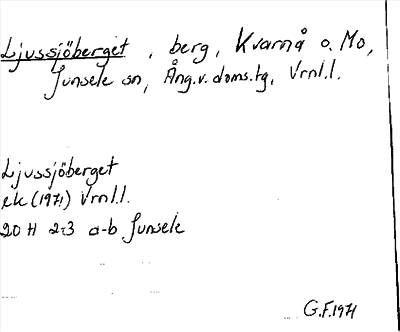 Ljussjöberget, berg, Kvarnå o. Mo,
Junsele sn, Ång.v.doms.tg, Vrnl.l.
Ljussjöberget
ek (1971) Vrnl.l.
20 H 2-3 a-b Junsele
G.F.1971